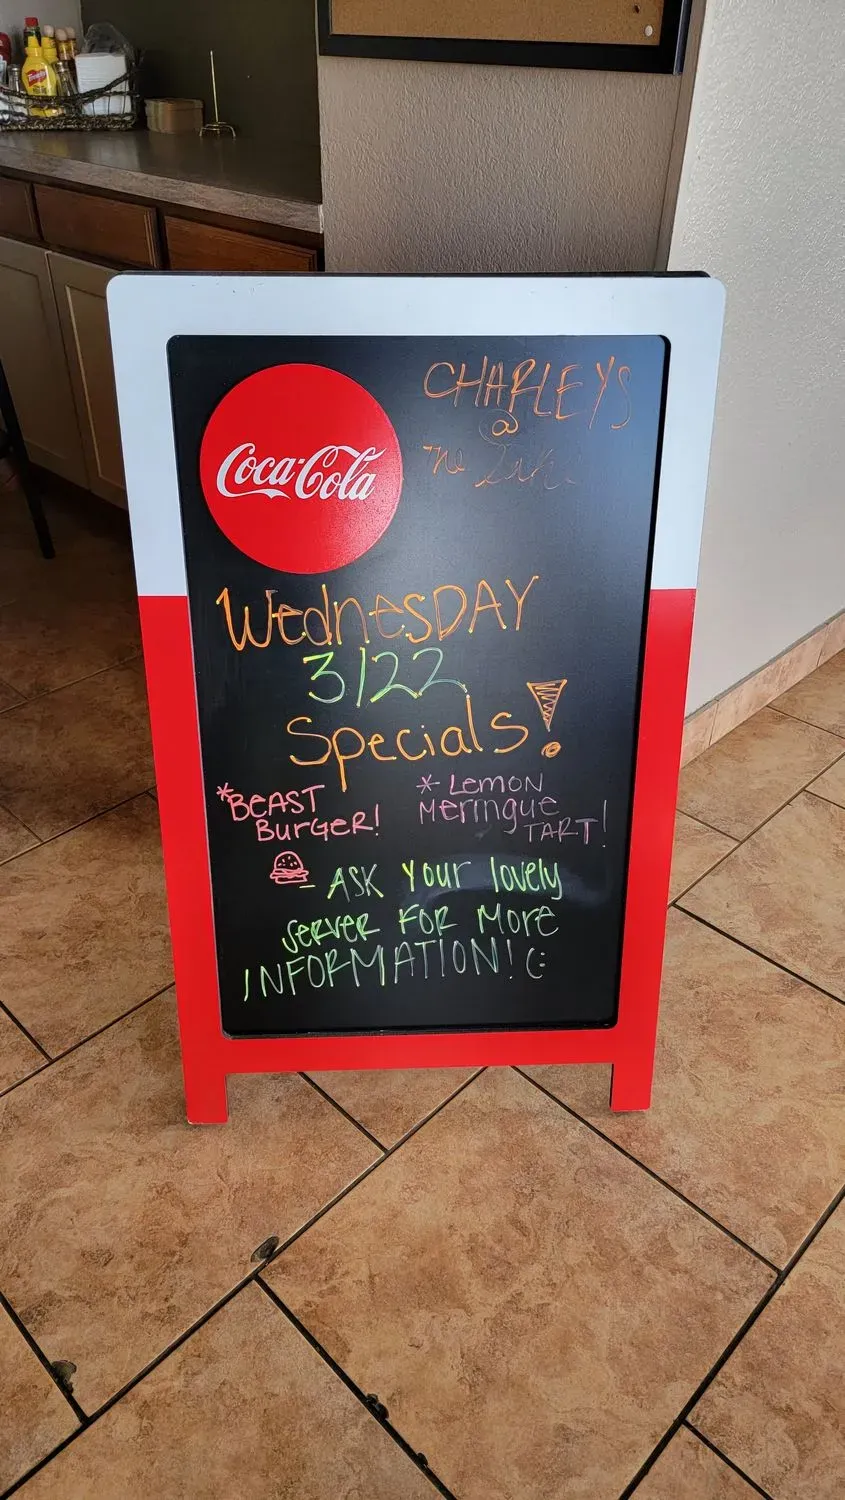 Coca-Cola
CHARLEYS
@
The
WednesDAY
3/22
Specials!
*BEAST
BURGER!
* LEMON
Meringue
TART!
- ASK Your lovely
SERVER FOR More
INFORMATION! (: